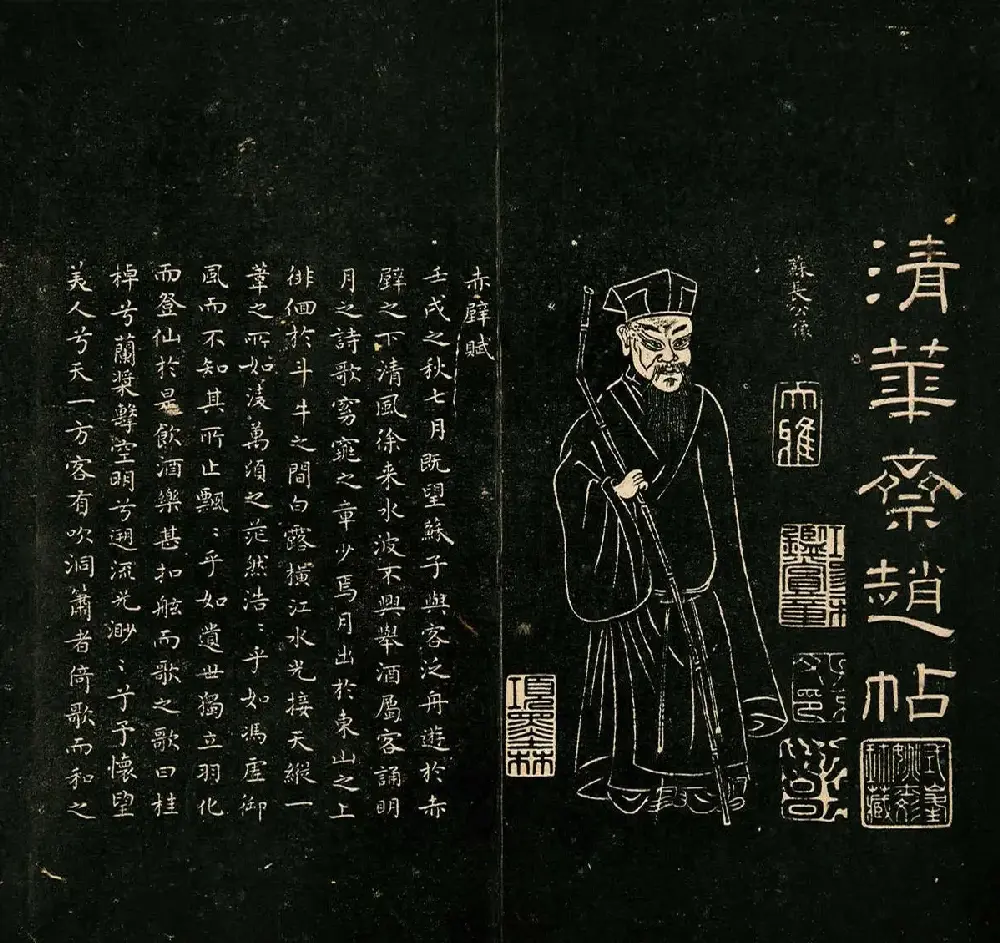 清華齋趙帖
蘇長公像
大雅
鑑賞章
項墨林
赤壁賦
壬戌之秋七月既望蘇子與客泛舟遊於赤
壁之下清風徐来水波不興舉酒屬客誦明
月之詩歌窈窕之章少焉月出於東山之上
徘徊於斗牛之間白露橫江水光接天縱一
葦之所如淩萬頃之茫然浩:乎如馮虛御
風而不知其所止飄:乎如遺世獨立羽化
而登仙於是飲酒樂甚扣舷而歌之歌曰桂
棹兮蘭槳擊空明兮遡流光渺:兮予懷望
美人兮天一方客有吹洞簫者倚歌而和之